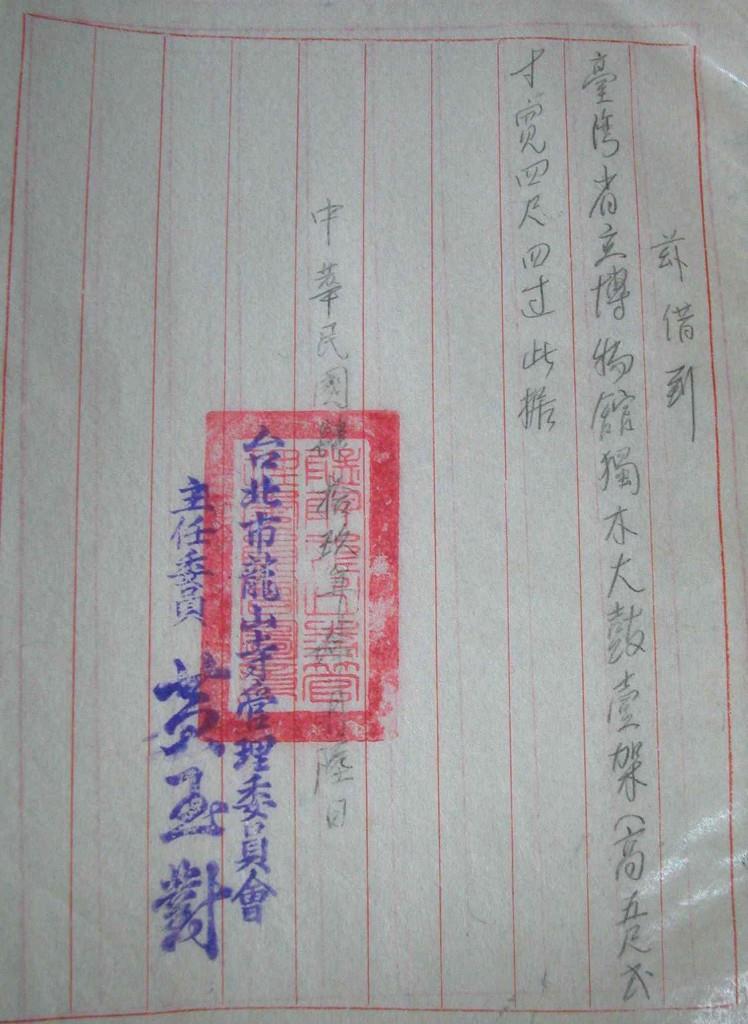 茲借到
臺灣省立博物館獨木大鼓壹架（高五尺弍
寸寬四尺四寸 此据
中華民國肆拾玖年 月陸日
台北市龍山寺管理委員會
主任委員 黃玉對